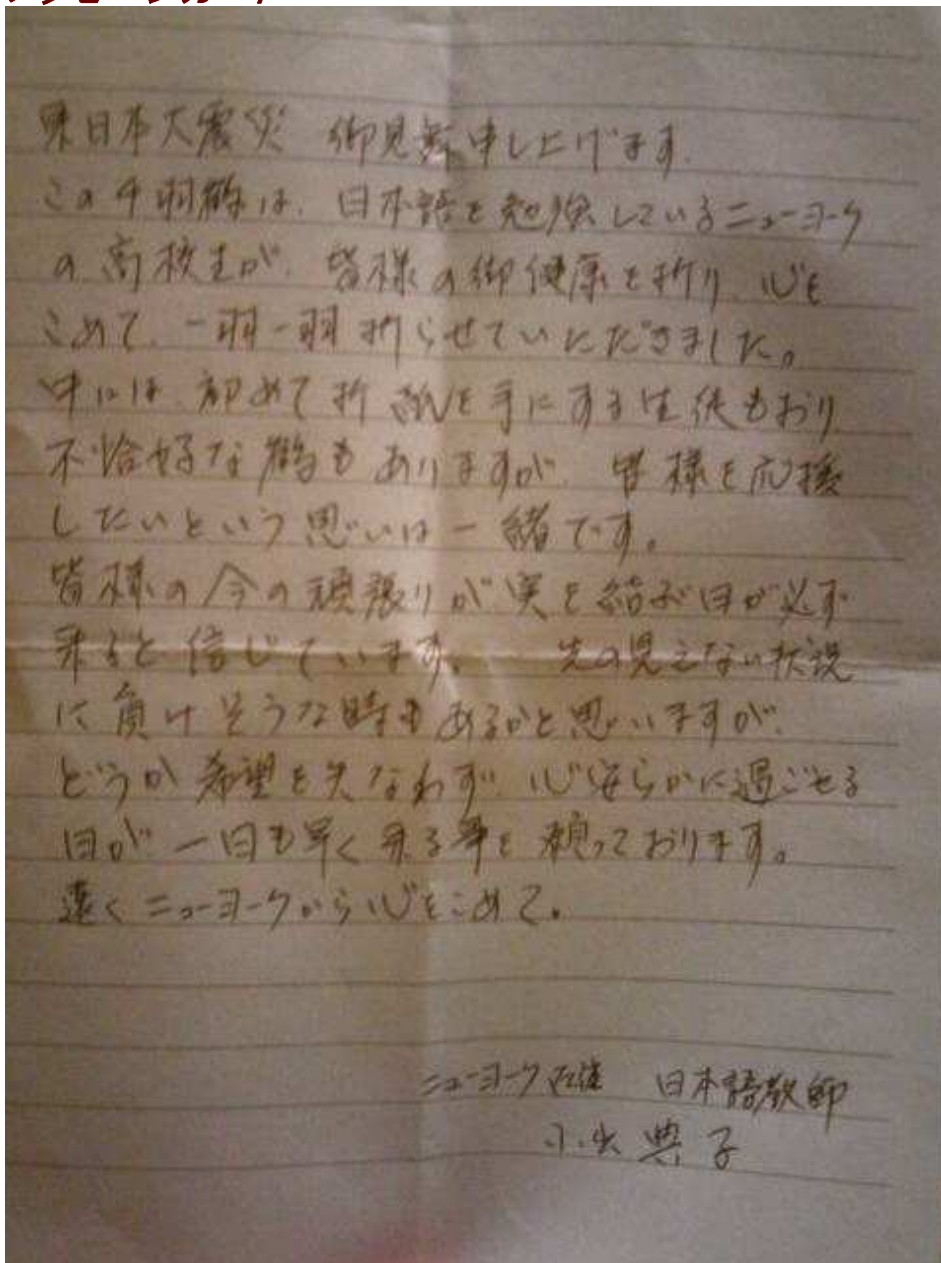 東日本大震災 御見舞申し上げます。
この千羽鶴は、日本語を勉強しているニューヨーク
の高校生が、皆様の御健康を祈り、心を
こめて、一羽一羽折らせていただきました。
中には、初めて折り紙を手にする生徒もおり
不恰好な鶴もありますが、皆様を応援
したいという思いは一緒です。
皆様の今の頑張りが実を結ぶ日が必ず
来ると信じています。 先の見えない状況
に負けそうな時もあるかと思いますが、
どうか希望を失なわず 心安らかに過ごせる
日が一日も早く来る事を願っております。
遠くニューヨークから心をこめて。
ニューヨーク在住 日本語教師
小出 典子